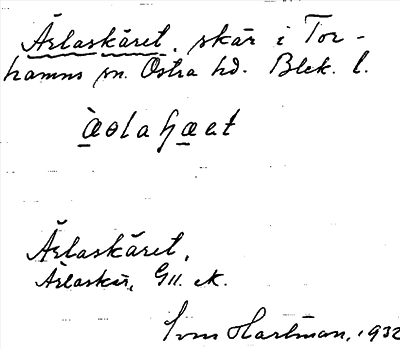 Ärlaskäret, skär i Tor-
hamns sn. Östra hd. Blek. l.
Ärlaskäret,
Ärlaskär, Gll. ek.
Sven Hartman, 1932